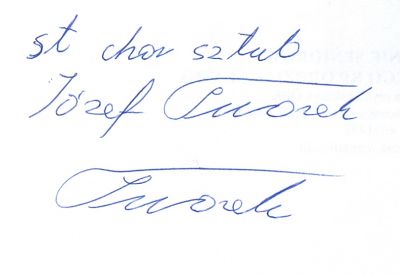 st chor sztab
Józef Tworek
Tworek